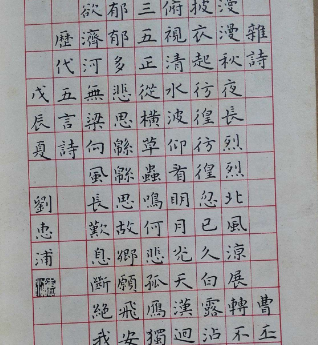 雜詩 曹丕
漫漫秋夜長烈烈北風涼展轉不
披衣起彷徨彷徨忽已久白露沾
俯視清水波仰看明月光天漢迴
三五正從橫草蟲鳴何悲孤鴈獨
郁郁多悲思緜緜思故鄉願飛安
欲濟河無梁向風長歎息斷絕我
歷代五言詩
戊辰夏 劉惠浦